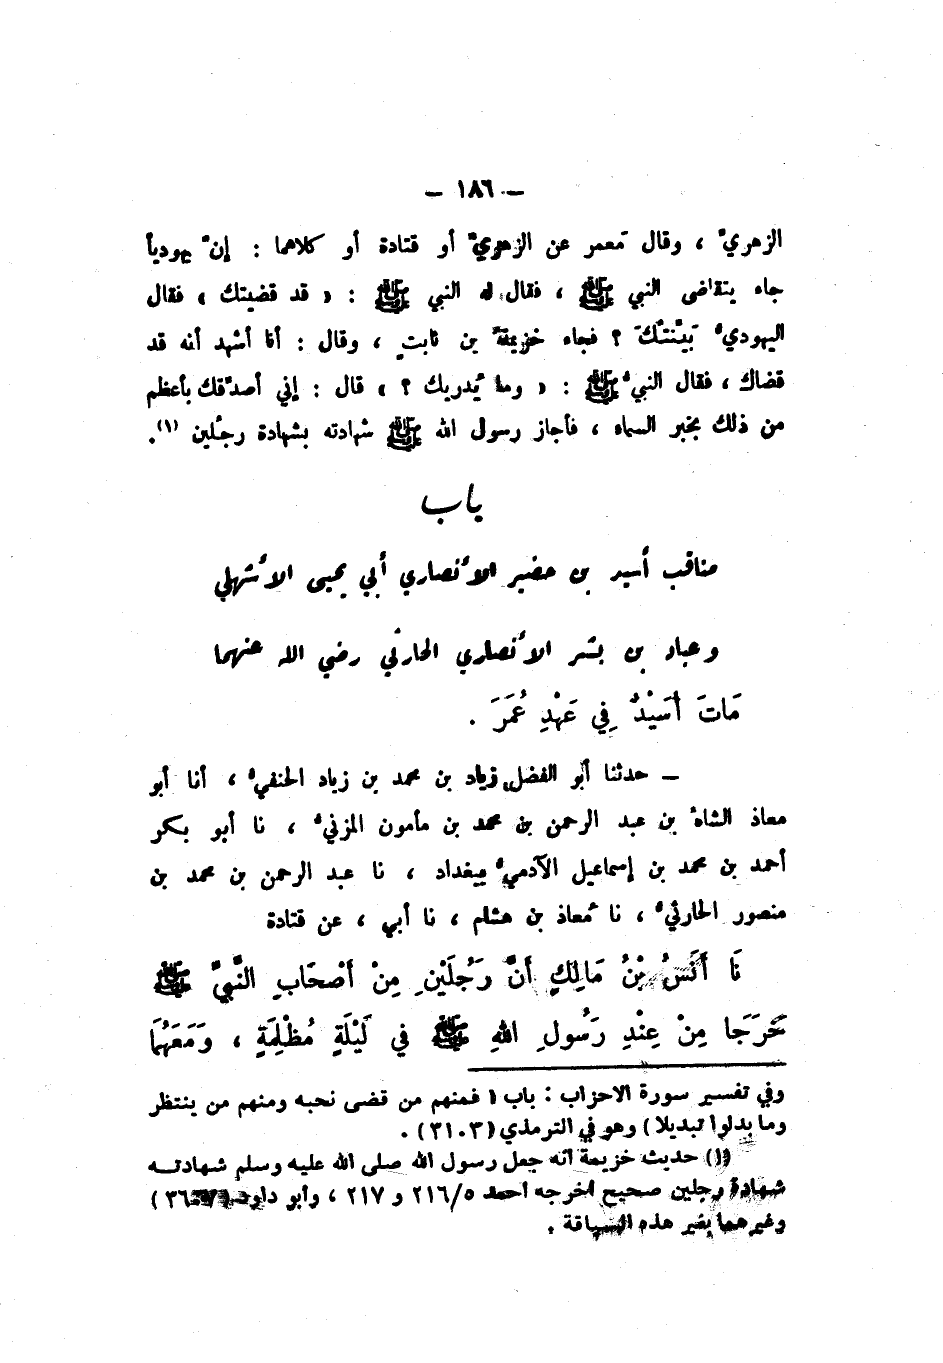 — ١٨٦ —
الزهريّ ، وقال مَعمر عن الزهريّ أو قتادة أو كلاهما : إنّ يهودياً
جاء يتقاضى النبي ﷺ ، فقال له النبي ﷺ : « قد قضيتك » فقال
اليهوديُّ بَيِّنَتُكَ ؟ فجاء خزيمةُ بن ثابتٍ ، وقال : أنا أشهد أنه قد
قضاك ، فقال النبيُّ ﷺ : « وما يُدريك ؟ » قال : إني أصدّقك بأعظم
من ذلك بخبر السماء ، فأجاز رسول الله ﷺ شهادته بشهادة رجُلين (١).
باب
مناقب أسيد بن حضير الأنصاري أبي يحيى الأشهلي
وعباد بن بشر الأنصاري الحارثي رضي الله عنهما
مَاتَ أُسَيْدٌ فِي عَهْدِ عُمَرَ .
— حدثنا أبو الفضل زياد بن محمد بن زياد الحنفيُّ ، أنا أبو
معاذ الشاه بن عبد الرحمن بن محمد بن مأمون المزنيُّ ، نا أبو بكر
أحمد بن محمد بن إسماعيل الآدميُّ ببغداد ، نا عبد الرحمن بن محمد بن
منصور الحارثيُّ ، نا مُعاذ بن هشام ، نا أبي ، عن قتادة
نَا أَنَسُ بْنُ مَالِكٍ أَنَّ رَجُلَيْنِ مِنْ أَصْحَابِ النَّبِيِّ ﷺ
خَرَجَا مِنْ عِنْدِ رَسُولِ اللهِ ﷺ فِي لَيْلَةٍ مُظْلِمَةٍ ، وَمَعَهُمَا
وفي تفسير سورة الاحزاب : باب ( فمنهم من قضى نحبه ومنهم من ينتظر
وما بدلوا تبديلا ) وهو في الترمذي (٣١٠٣) .
(١) حديث خزيمة أنه جعل رسول الله صلى الله عليه وسلم شهادته
شهادة رجلين صحيح أخرجه أحمد ٢١٦/٥ و ٢١٧ ، وأبو داود (٣٦٠٧)
وغيرهما بغير هذه السياقة .